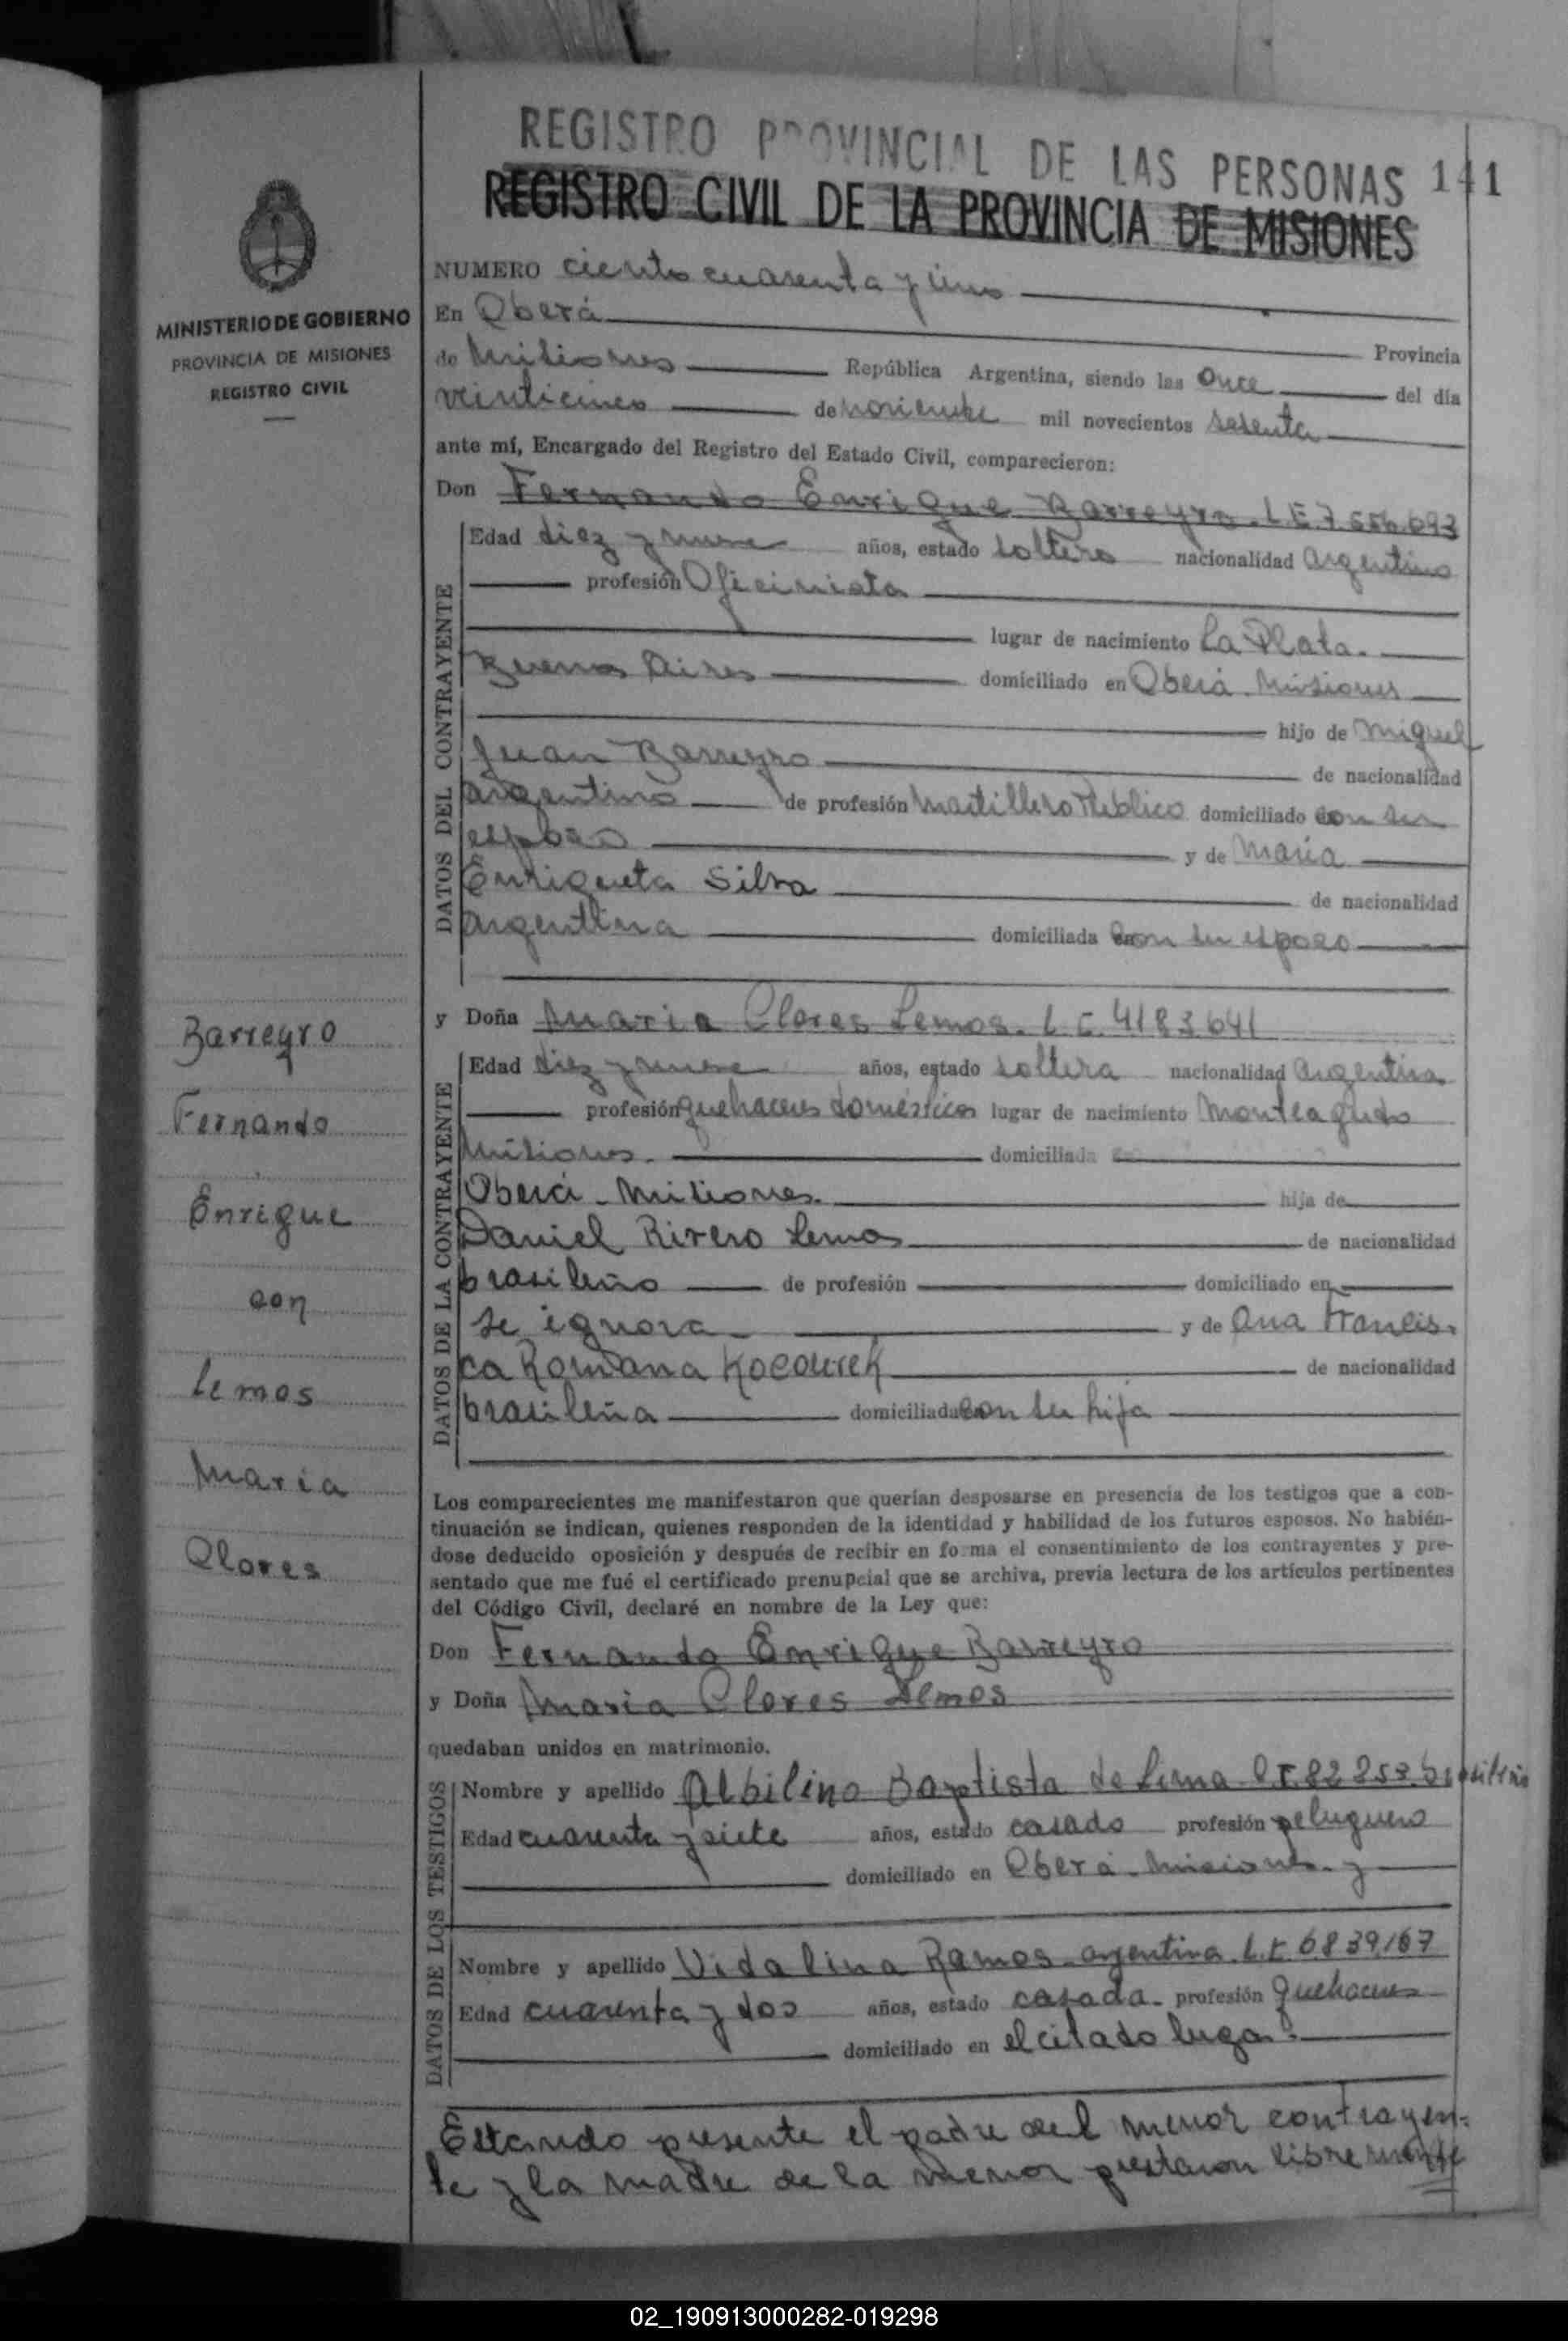 REGISTRO PROVINCIAL DE LAS PERSONAS 141
REGISTRO CIVIL DE LA PROVINCIA DE MISIONES
MINISTERIO DE GOBIERNO
PROVINCIA DE MISIONES
REGISTRO CIVIL
NUMERO ciento cuarenta y uno
En Oberá
Provincia
de Misiones República Argentina, siendo las Once del día
veinticinco de noviembre mil novecientos setenta
ante mí, Encargado del Registro del Estado Civil, comparecieron:
Don Fernando Enrique Barreyro. L E 7.656.693
DATOS DEL CONTRAYENTE
Edad diez y nueve años, estado soltero nacionalidad argentino
profesión Oficinista
lugar de nacimiento La Plata.
Buenos Aires domiciliado en Oberá Misiones
hijo de Miguel
Juan Barreyro de nacionalidad
argentino de profesión Martillero Público domiciliado con su
esposa y de María
Enriqueta Silva de nacionalidad
argentina domiciliada con su esposo
y Doña Maria Clores Lemos. L C. 4183641
DATOS DE LA CONTRAYENTE
Edad diez y nueve años, estado soltera nacionalidad argentina
profesión quehaceres domésticos lugar de nacimiento Monteagudo
Misiones. domiciliada en
Oberá - Misiones. hija de
Daniel Rivero Lemos de nacionalidad
brasileño de profesión domiciliado en
se ignora y de Ana Francis.
ca Romana Kocourek de nacionalidad
brasileña domiciliada con su hija
Barreyro
Fernando
Enrique
con
Lemos
Maria
Clores
Los comparecientes me manifestaron que querían desposarse en presencia de los testigos que a con-
tinuación se indican, quienes responden de la identidad y habilidad de los futuros esposos. No habién-
dose deducido oposición y después de recibir en forma el consentimiento de los contrayentes y pre-
sentado que me fué el certificado prenupcial que se archiva, previa lectura de los artículos pertinentes
del Código Civil, declaré en nombre de la Ley que:
Don Fernando Enrique Barreyro
y Doña Maria Clores Lemos
quedaban unidos en matrimonio.
DATOS DE LOS TESTIGOS
Nombre y apellido Albilino Baptista de Lima C I 82 853 brasileño
Edad cuarenta y siete años, estado casado profesión peluquero
domiciliado en Oberá - Misiones. y
Nombre y apellido Vidalina Ramos argentina L.C 6839167
Edad cuarenta y dos años, estado casada profesión quehaceres
domiciliado en el citado lugar.
Estando presente el padre del menor contrayen-
te y la madre de la menor prestaron libremente
02_190913000282-019298